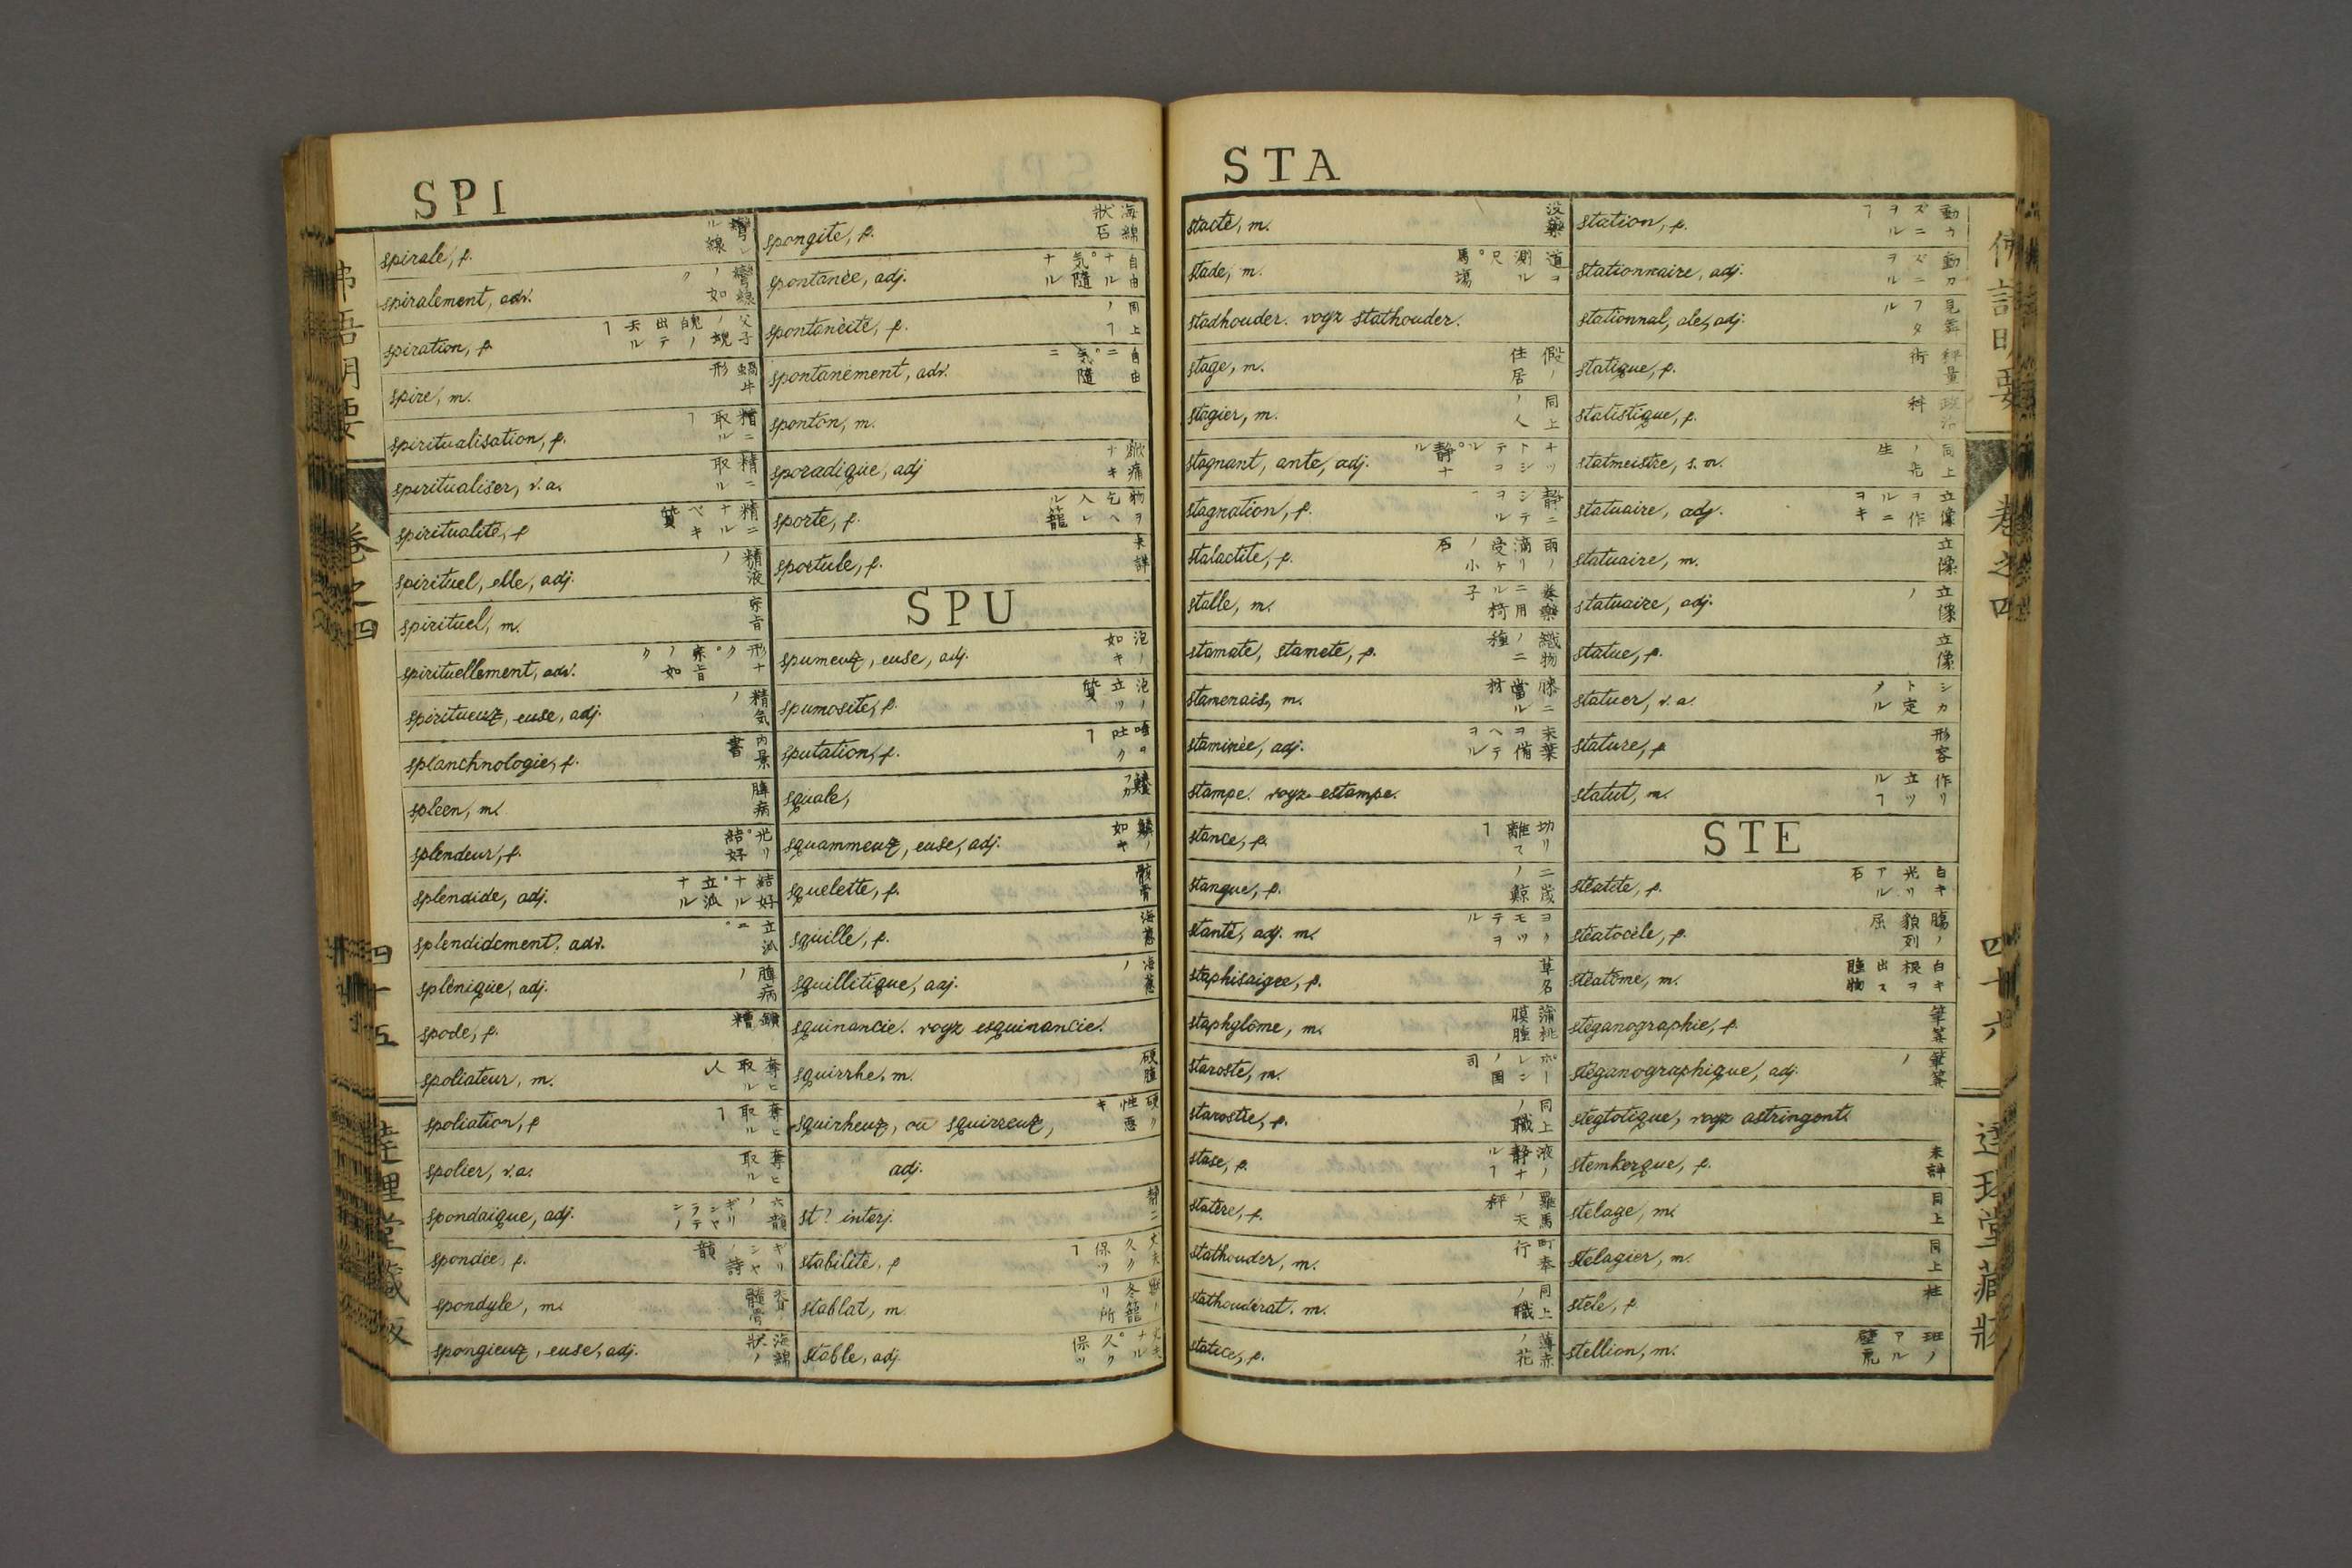 SPI
spirale, f.
spiralement, adv.
spiration, f.
spire, m.
蝸牛形
spiritualisation, f.
精ニ取ルヿ
spiritualiser, v.a.
精ニ取ル
spiritualité, f
精ニナルベキ質
spirituel, elle, adj.
精液ノ
spirituel, m.
宗旨
spirituellement, adv.
spiritueux, euse, adj.
精気ノ
splanchnologie, f.
内景書
spleen, m.
脾病
splendeur, f.
光リ。結好
splendide, adj.
結好ナル。立派ナル
splendidement, adv.
立派ニ。
splénique, adj.
脾病ノ
spode, f.
spoliateur, m.
奪ヒ取ル人
spoliation, f
奪ヒ取ルヿ
spolier, v.a.
奪ヒ取ル
spondaique, adj.
spondée, f.
spondyle, m.
spongieux, euse, adj.
海綿状ノ
spongite, f.
海綿狀石
spontanée, adj.
自由ナル。気隨ナル
spontanéité, f.
同上ノヿ
spontanément, adv.
自由ニ。気隨ニ
sponton, m.
sporadique, adj
sporte, f.
物ヲ乞ヘ入レル籠
sportule, f.
未詳
SPU
spumeux, euse, adj.
泡ノ如キ
spumosité, f.
泡ノ立ツ質
sputation, f.
唾ヲ吐クヿ
squale,
squammeux, euse, adj.
鱗ノ如キ
squelette, f.
骸骨
squille, f.
海葱
squillitique, adj.
海葱ノ
squinancie. voyz esquinancie.
squirrhe, m.
硬腫
squirheux, ou squirreux,
adj.
硬ク性悪キ
st! interj.
静ニ
stabilité, f
丈夫久ク保ツヿ
stablat, m.
獣ノ冬籠リ所
stable, adj.
丈夫ナル。久ク保ツ
STA
stacté, m.
没藥
stade, m.
道ヲ測ル尺。馬場
stadhouder. voyz stathouder.
stage, m.
假ノ住居
stagier, m.
同上ノ人
stagnant, ante, adj.
stagnation, f.
静ニシテヲルヿ
stalactite, f.
雨ノ滴リ受ケノ小石
stalle, m.
奏樂ニ用ル椅子
stamate, stamete, f.
織物ノ二種
stamenais, m.
staminée, adj.
stampe. voyz estampe.
stance, f.
切リ離スヿ
stangue, f.
stanté, adj. m.
staphisaigre, f.
草名
staphylôme, m.
蒲桃膜腫
staroste, m.
ポーレンノ国司
starostie, f.
同上ノ職
stase, f.
液ノ静ナルヿ
statère, f.
羅馬ノ天秤
stathouder, m.
町奉行
stathoudérat, m.
同上ノ職
statice, f.
薄赤ノ花
station, f.
動カズニヲルヿ
stationnaire, adj.
動カズニヲル
stationnal, ale, adj.
見舞フタル
statique, f.
秤量術
statistique, f.
政治科
statmeistre, s.m.
同上ノ先生
statuaire, adj.
立像ヲ作ルニヨキ
statuaire, m.
立像
statuaire, adj.
立像ノ
statue, f.
立像
statuer, v.a.
シカト定メル
stature, f
形容
statut, m.
作リ立ツルヿ
STE
stéatite, f.
白キ光リアル石
stéatocèle, f.
stéatôme, m.
stéganographie, f.
stéganographique, adj.
stegtotique, voyz astringent.
stemkerque, f.
未詳
stelage, m.
同上
stelagier, m.
同上
stele, f.
柱
stellion, m.
卷之四
四十五
四十六
達理堂藏版